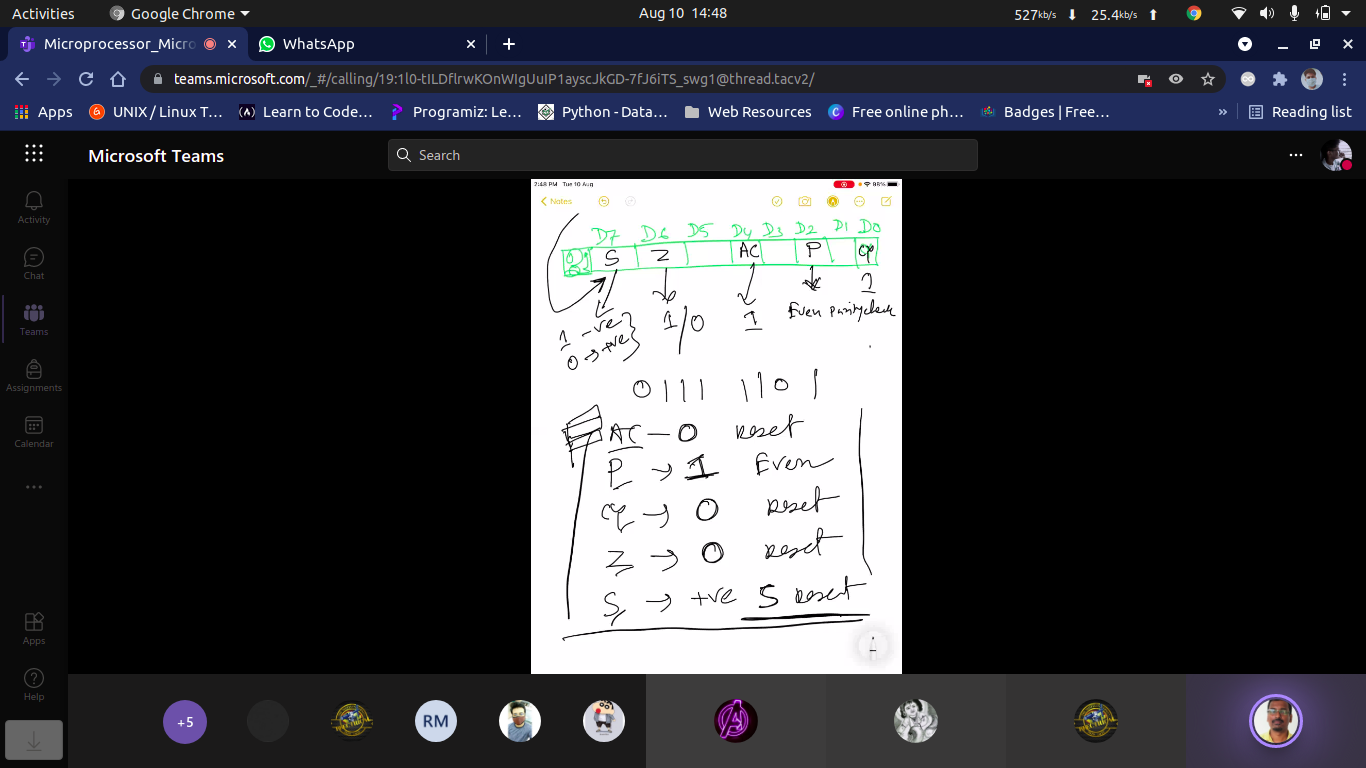 Activities Google Chrome Aug 10 14:48 527kb/s 25.4kb/s
Microprocessor_Micro WhatsApp
teams.microsoft.com/_#/calling/19:1l0-tILDflrwKOnWIgUuIP1ayscJkGD-7fJ6iTS_swg1@thread.tacv2/
Apps UNIX / Linux T... Learn to Code... Programiz: Le... Python - Data... Web Resources Free online ph... Badges | Free... » Reading list
Microsoft Teams Search
Activity
Chat
Teams
Assignments
Calendar
Apps
Help
2:48 PM Tue 10 Aug 98%
Notes
D7 D6 D5 D4 D3 D2 D1 D0
S Z AC P cy
1 -ve 1/0 1 Even parity check 1
0 → +ve
0111 1101
AC — 0 reset
P → 1 Even
cy → 0 reset
Z → 0 reset
S → +ve S reset
+5 RM